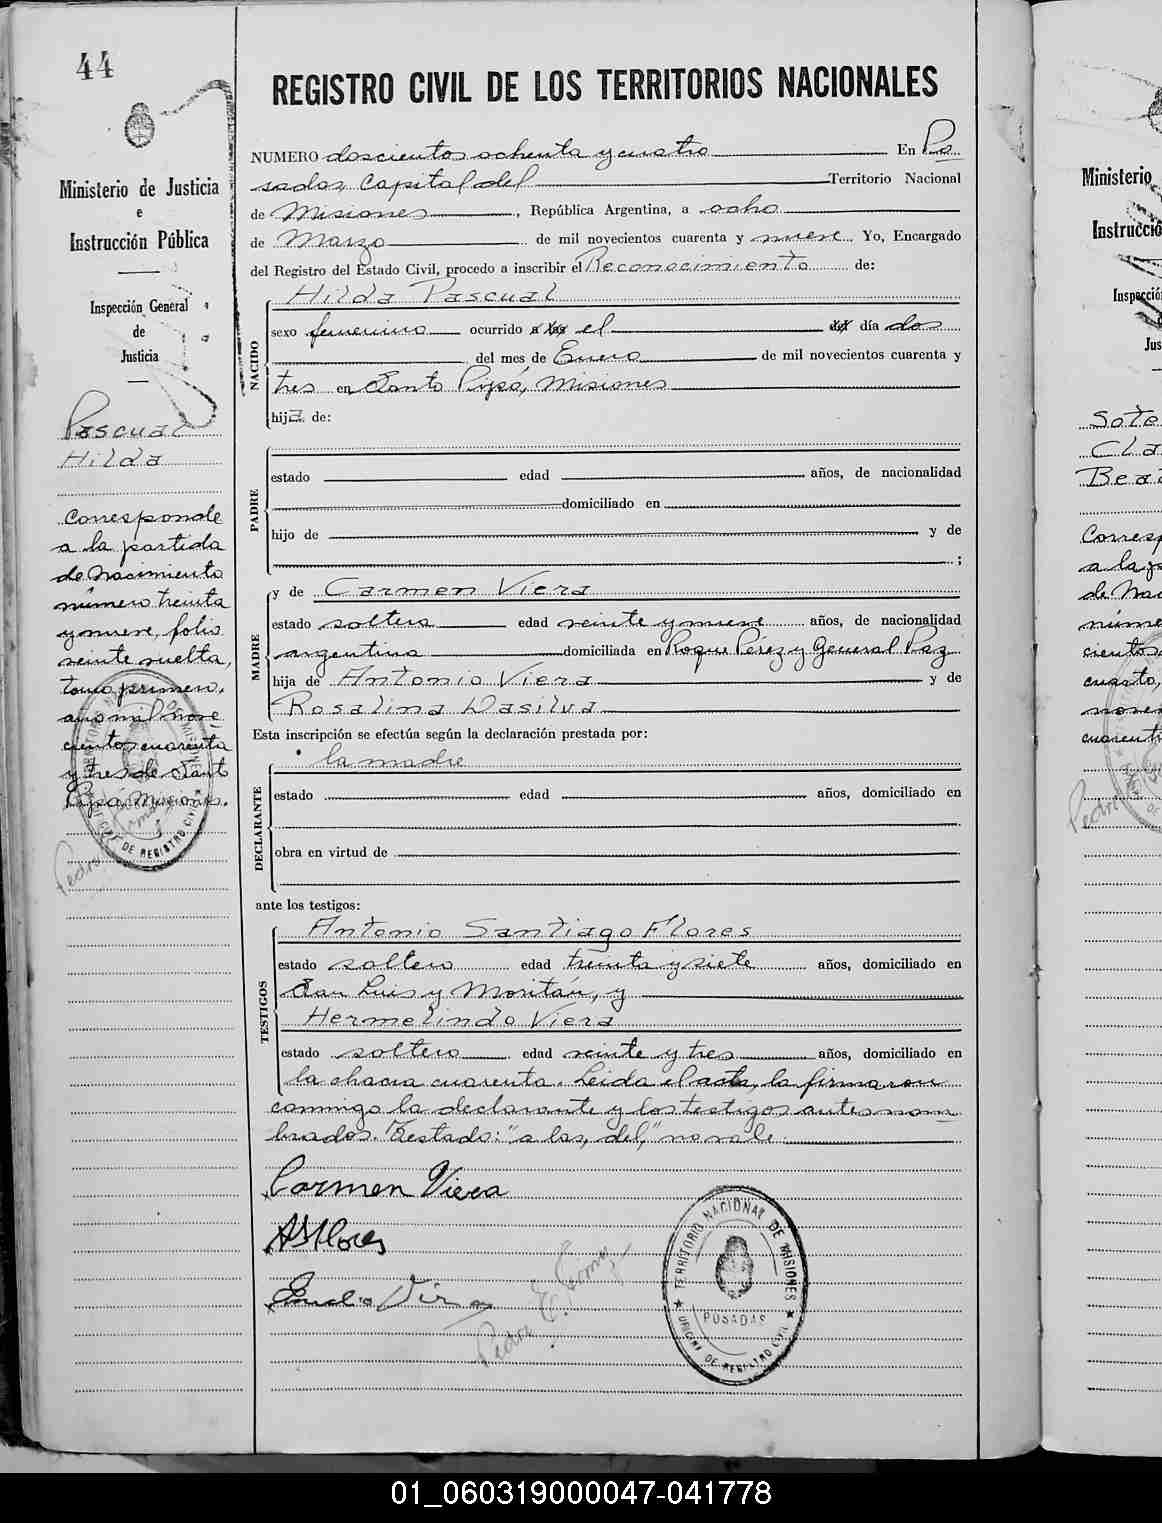 44
Ministerio de Justicia
e
Instrucción Pública
Inspección General
de
Justicia
Pascual
Hilda
Corresponde
a la partida
de Nacimiento
número treinta
y nueve, folio
veinte vuelta,
tomo primero,
año mil nove
cientos cuarenta
y tres de Santo
Pipó, Misiones.
REGISTRO CIVIL DE LOS TERRITORIOS NACIONALES
NUMERO doscientos ochenta y cuatro En Po
sadas, Capital del Territorio Nacional
de Misiones, República Argentina, a ocho
de Marzo de mil novecientos cuarenta y nueve. Yo, Encargado
del Registro del Estado Civil, procedo a inscribir el Reconocimiento de:
Hilda Pascual
NACIDO
sexo femenino ocurrido a las el del día dos
del mes de Enero de mil novecientos cuarenta y
tres en Santo Pipó, Misiones
hija de:
PADRE
estado edad años, de nacionalidad
domiciliado en
hijo de y de
;
MADRE
y de Carmen Viera
estado soltera edad veinte y nueve años, de nacionalidad
argentina domiciliada en Roque Pérez y General Paz
hija de Antonio Viera y de
Rosalina Dasilva
Esta inscripción se efectúa según la declaración prestada por:
DECLARANTE
la madre
estado edad años, domiciliado en
obra en virtud de
ante los testigos:
TESTIGOS
Antonio Santiago Flores
estado soltero edad treinta y siete años, domiciliado en
San Luis y Moritán, y
Hermelindo Viera
estado soltero edad veinte y tres años, domiciliado en
la chacra cuarenta. Leida el acta, la firmaron
conmigo la declarante y los testigos antes nom
brados. Testado: "a las, del," no vale.
Carmen Viera
ASFlores
Pedro E.
TERRITORIO NACIONAL DE MISIONES
POSADAS
OFICINA DE REGISTRO CIVIL
Ministerio
Instrucció
Inspecció
Jus
Sote
Cla
Bea
Corresp
a la p
de Nac
núme
cientos
cuarto,
noven
cuarent
01_060319000047-041778